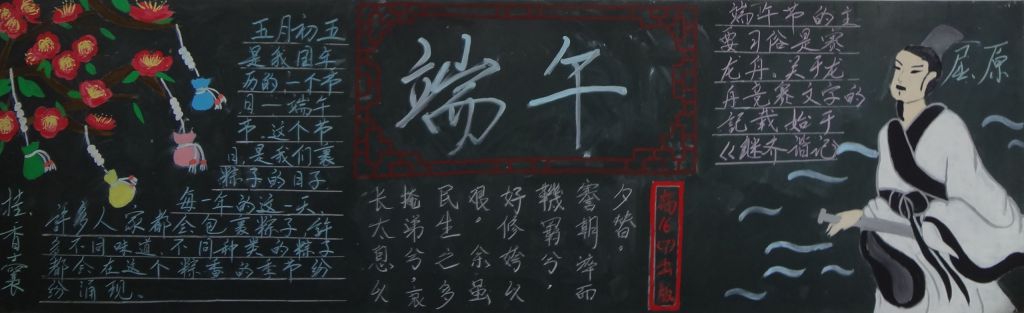 五月初五
是我国农
历的一个节
日—端午
节.这个节
日,是我们裹
粽子的日子
每一年的这一天、
许多人家都会包裹粽子,许
多不同味道、不同种类的粽子
都会在这个粽香的季节纷
纷涌现、
挂香囊
端午
长太息以
掩涕兮,哀
民生之多
艰。余虽
好修姱以
鞿羁兮,
謇朝谇而
夕替。
出版
端午节的主
要习俗是赛
龙舟、关于龙
舟竞赛文字的
记载始于
《继齐谐记》
屈原